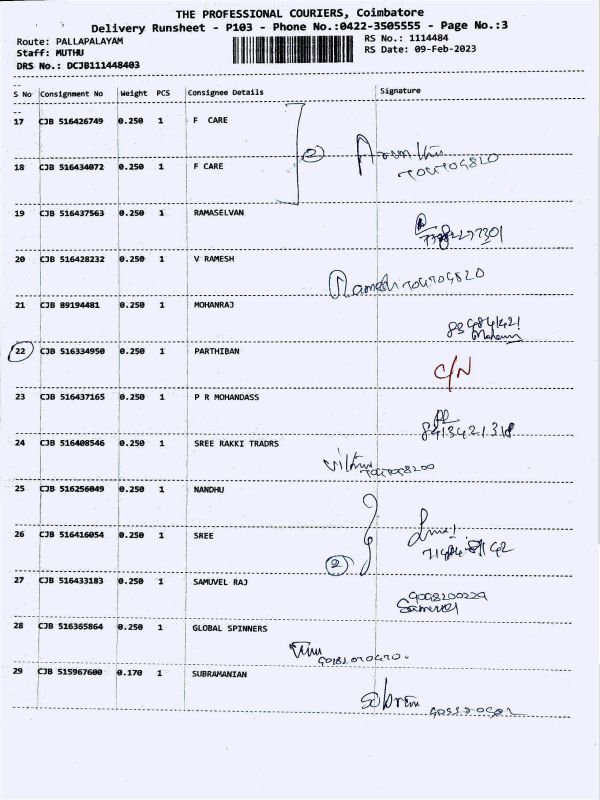 THE PROFESSIONAL COURIERS, Coimbatore
Delivery Runsheet - P103 - Phone No.:0422-3505555 - Page No.:3
Route: PALLAPALAYAM
RS No.: 1114484
Staff: MUTHU
RS Date: 09-Feb-2023
DRS No.: DCJB111448403
S No Consignment No Weight PCS Consignee Details Signature
17 CJB 516426749 0.250 1 F CARE
2
18 CJB 516434072 0.250 1 F CARE
19 CJB 516437563 0.250 1 RAMASELVAN
20 CJB 516428232 0.250 1 V RAMESH
Ramesh
21 CJB 89194481 0.250 1 MOHANRAJ
22 CJB 516334950 0.250 1 PARTHIBAN
C/N
23 CJB 516437165 0.250 1 P R MOHANDASS
24 CJB 516408546 0.250 1 SREE RAKKI TRADRS
25 CJB 516256049 0.250 1 NANDHU
26 CJB 516416054 0.250 1 SREE
2
27 CJB 516433183 0.250 1 SAMUVEL RAJ
28 CJB 516365864 0.250 1 GLOBAL SPINNERS
29 CJB 515967600 0.170 1 SUBRAMANIAN